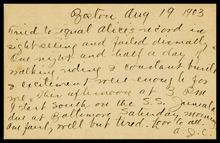 Boston Aug 19 1903
Tried to equal Alice's record in
sight-seeing and failed dismally.
One night and half a day of
walking riding & constant
& excitement were enough for
me. This afternoon at 2 P.M.
I start south on the S.S. Juniata
due at Baltimore Saturday morning
Am fairly well but tired. Love to all.
A.J.C.